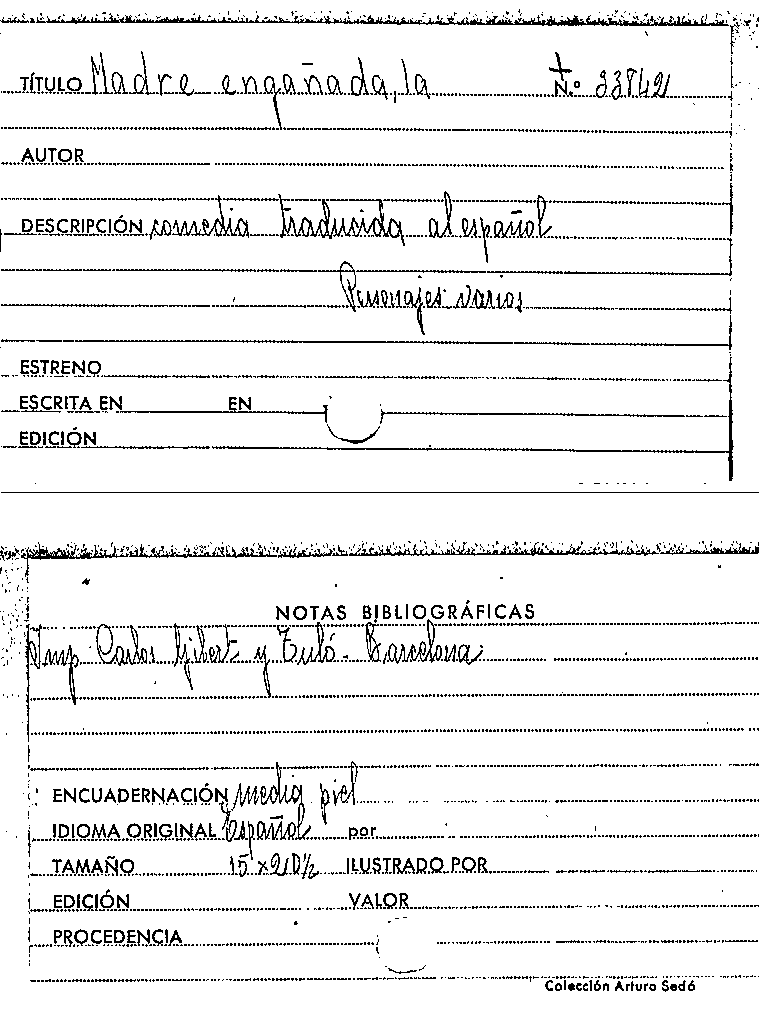 TÍTULO Madre engañada, la N.º 33842
AUTOR
DESCRIPCIÓN comedia traducida al español
Personajes varios
ESTRENO
ESCRITA EN EN
EDICIÓN
NOTAS BIBLIOGRÁFICAS
Imp Carlos Gibert y Tuló - Barcelona
ENCUADERNACIÓN media piel
IDIOMA ORIGINAL Español por
TAMAÑO 15 x 20½ ILUSTRADO POR
EDICIÓN VALOR
PROCEDENCIA
Colección Arturo Sedó